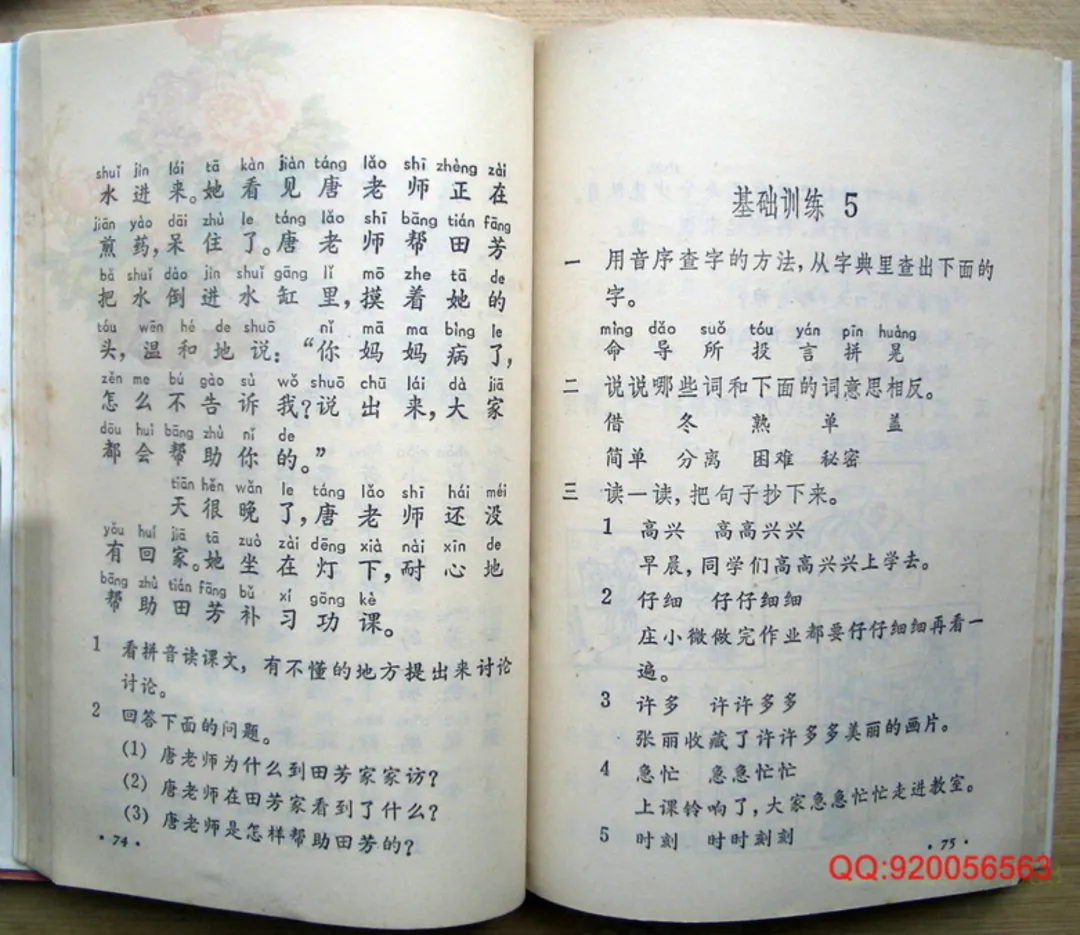 shuǐ jìn lái tā kàn jiàn táng lǎo shī zhèng zài
水进来。她看见唐老师正在
jiān yào dāi zhù le táng lǎo shī bāng tián fāng
煎药,呆住了。唐老师帮田芳
bǎ shuǐ dào jìn shuǐ gāng lǐ mō zhe tā de
把水倒进水缸里,摸着她的
tóu wēn hé de shuō nǐ mā ma bìng le
头,温和地说:“你妈妈病了,
zěn me bú gào sù wǒ shuō chū lái dà jiā
怎么不告诉我?说出来,大家
dōu huì bāng zhù nǐ de
都会帮助你的。”
tiān hěn wǎn le táng lǎo shī hái méi
天很晚了,唐老师还没
yǒu huí jiā tā zuò zài dēng xià nài xīn de
有回家。她坐在灯下,耐心地
bāng zhù tián fāng bǔ xí gōng kè
帮助田芳补习功课。
1 看拼音读课文,有不懂的地方提出来讨论
讨论。
2 回答下面的问题。
(1) 唐老师为什么到田芳家家访?
(2) 唐老师在田芳家看到了什么?
(3) 唐老师是怎样帮助田芳的?
·74·
基础训练 5
一 用音序查字的方法,从字典里查出下面的
字。
mìng dǎo suǒ tóu yán pīn huàng
命 导 所 投 言 拼 晃
二 说说哪些词和下面的词意思相反。
借 冬 熟 单 盖
简单 分离 困难 秘密
三 读一读,把句子抄下来。
1 高兴 高高兴兴
早晨,同学们高高兴兴上学去。
2 仔细 仔仔细细
庄小微做完作业都要仔仔细细再看一
遍。
3 许多 许许多多
张丽收藏了许许多多美丽的画片。
4 急忙 急急忙忙
上课铃响了,大家急急忙忙走进教室。
5 时刻 时时刻刻
·75·
QQ:920056563